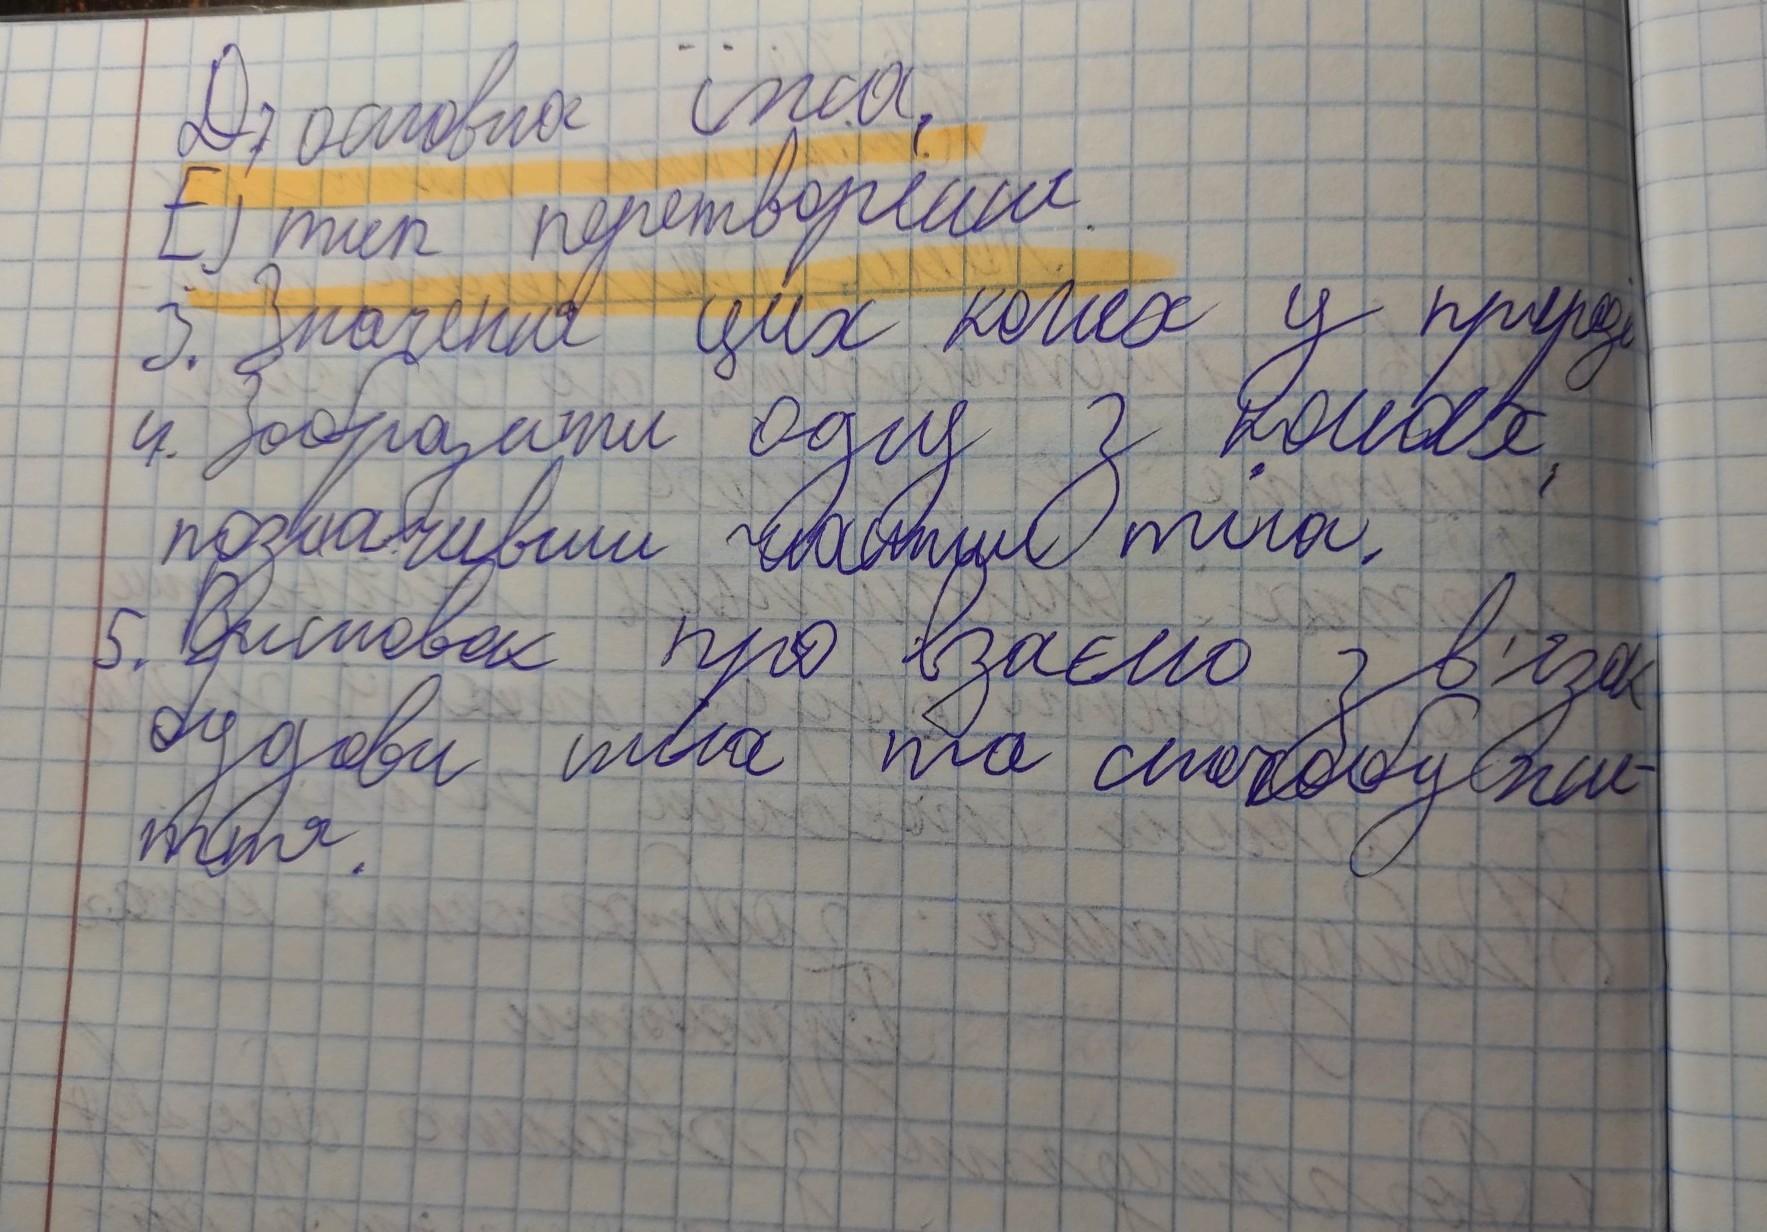 Д) основна їжа,
Е) тип перетворіння.
3. Значення цих комах у природі
4. Зобразити одну з комах,
позначивши частини тіла.
5. Висновок про взаємо зв'язок
будови тіла та способу жи-
ття.